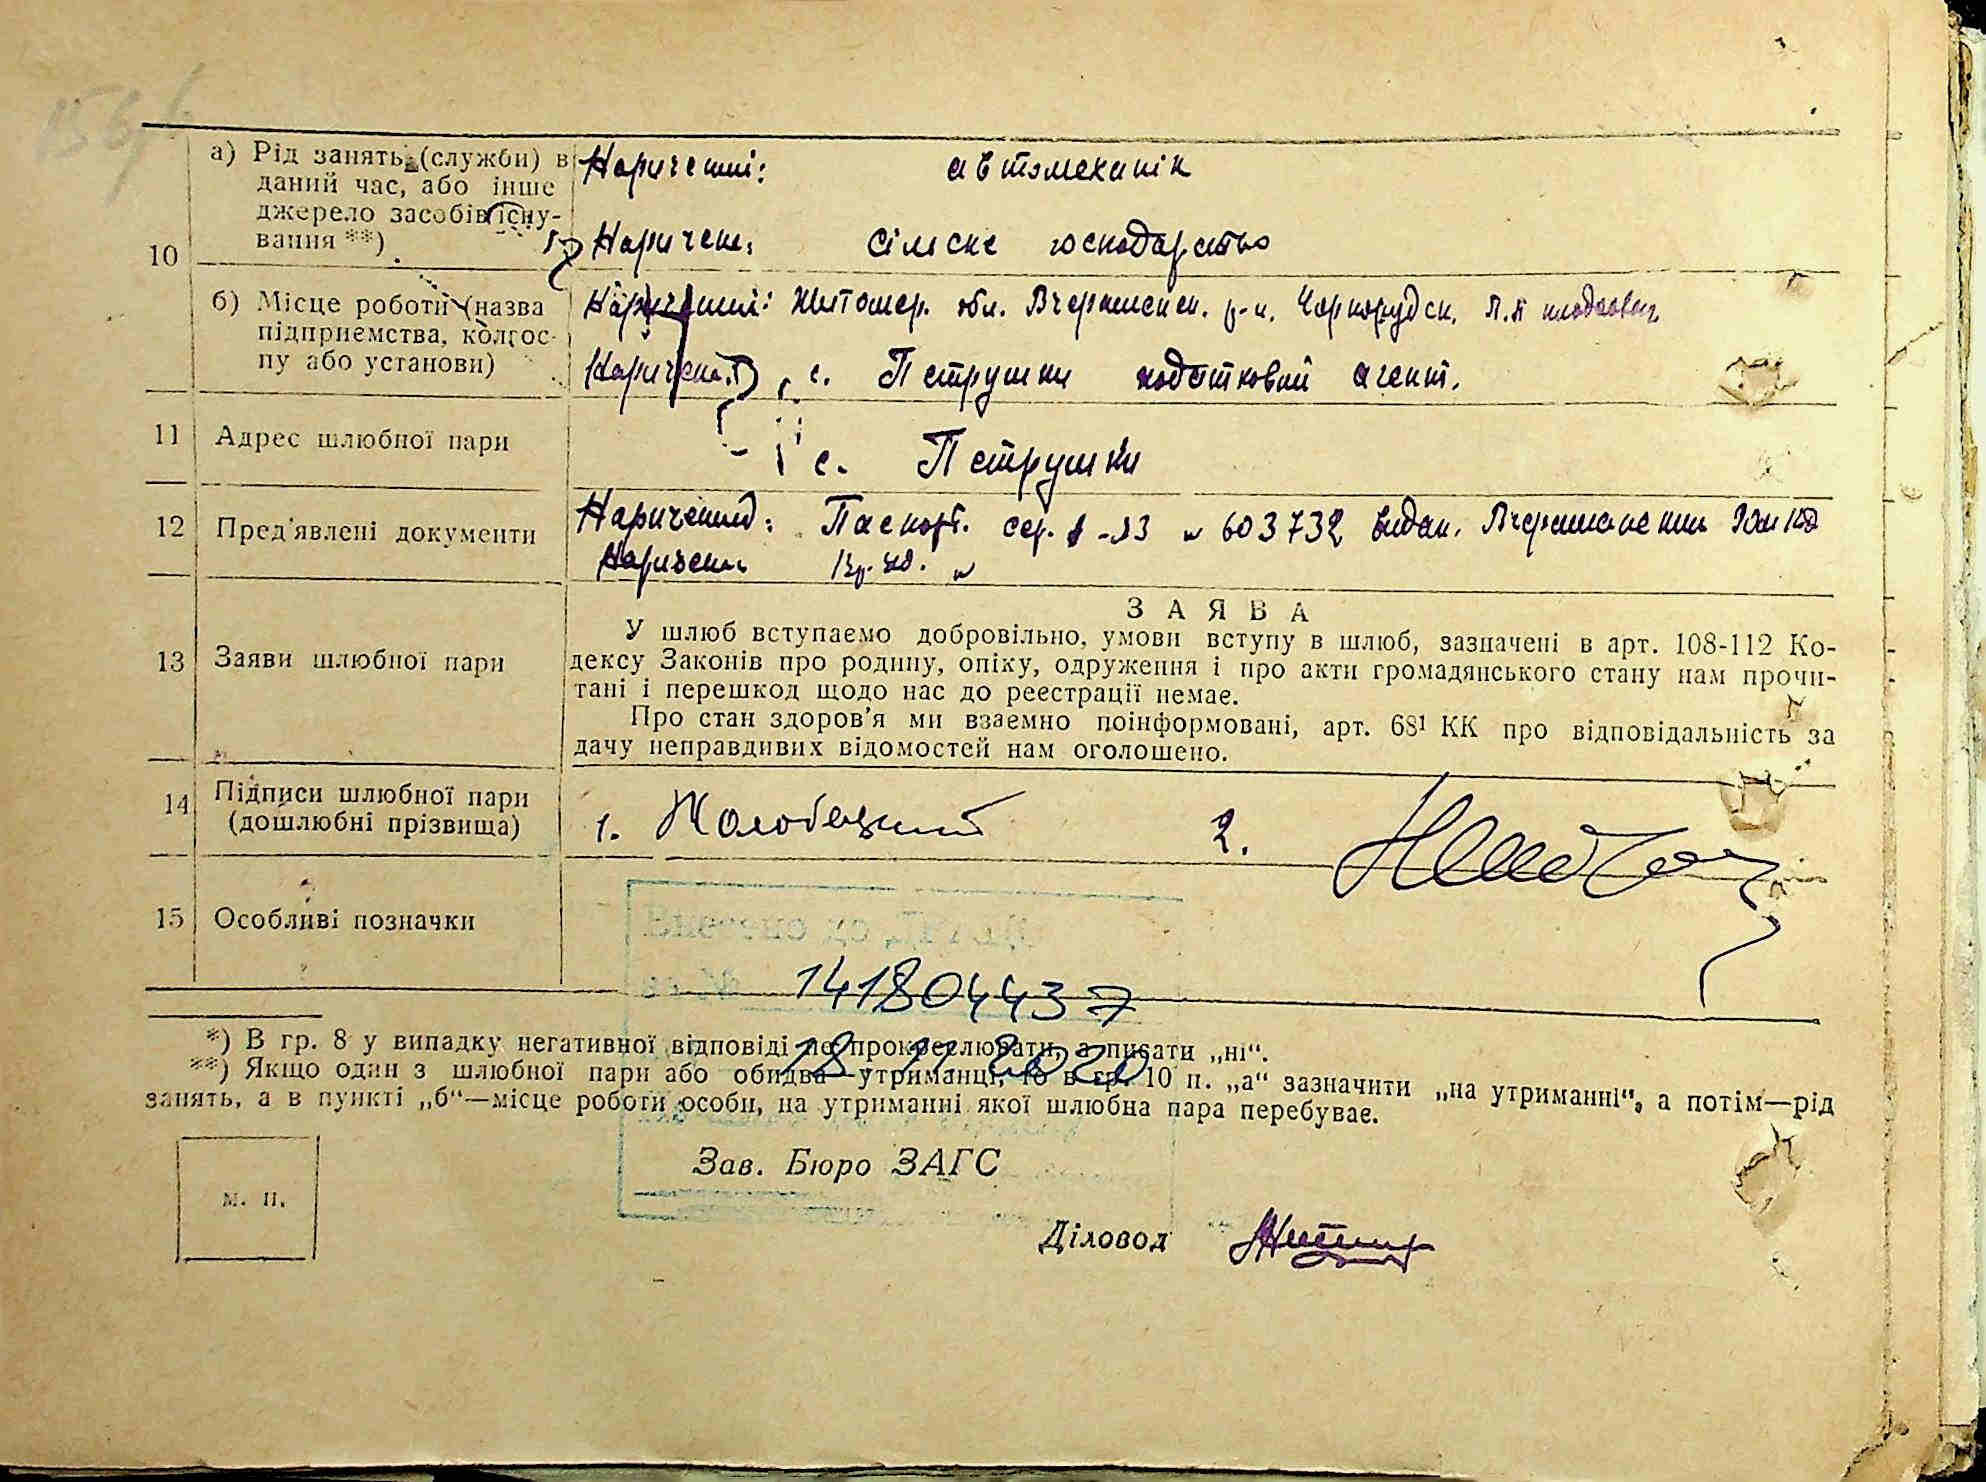 156
10
а) Рід занять (служби) в
даний час, або інше
джерело засобів існу-
вання **)
Наречений: автомеханік
Наречен: сілське господарство
б) Місце роботи (назва
підприємства, колгос-
пу або установи)
Наречений: Житомер. обл. Вчерашенск. р-н. Чорнорудск.
Наречена: с. Петрушки податковий агент.
11 Адрес шлюбної пари
с. Петрушки
12 Пред'явлені документи
Наречений: Паспорт. сер. -33 № 603732 видан.
Наречена №
13 Заяви шлюбної пари
ЗАЯВА
У шлюб вступаємо добровільно, умови вступу в шлюб, зазначені в арт. 108-112 Ко-
дексу Законів про родину, опіку, одруження і про акти громадянського стану нам прочи-
тані і перешкод щодо нас до реєстрації немає.
Про стан здоров'я ми взаємно поінформовані, арт. 68¹ КК про відповідальність за
дачу неправдивих відомостей нам оголошено.
14 Підписи шлюбної пари
(дошлюбні прізвища)
1. 2.
15 Особливі позначки
141804437
18 11 2020
*) В гр. 8 у випадку негативної відповіді не прокреслювати, а писати „ні“.
**) Якщо один з шлюбної пари або обидва—утриманці, то в гр. 10 п. „а“ зазначити „на утриманні“, а потім—рід
занять, а в пункті „б“—місце роботи особи, на утриманні якої шлюбна пара перебуває.
м. п.
Зав. Бюро ЗАГС
Діловод